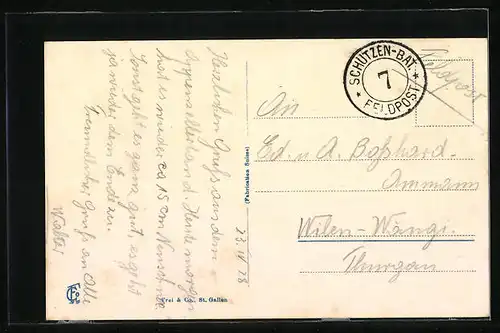 Herzlichen Gruss aus dem
Appenzellerland. Heute morgen
hat es wieder ca 15 cm Neuschnee.
Sonst geht es ganz gut, es geht
ja wieder dem Ende zu.
Freundlicher Gruss an Alle
Walter
23. IV 28
Frei & Co., St. Gallen
(Fabrication Suisse)
SCHÜTZEN-BAT.
7
* FELDPOST *
Feldpost
An
Ed. u. A. Boßhard-
Ammann
Wilen-Wängi.
Thurgau